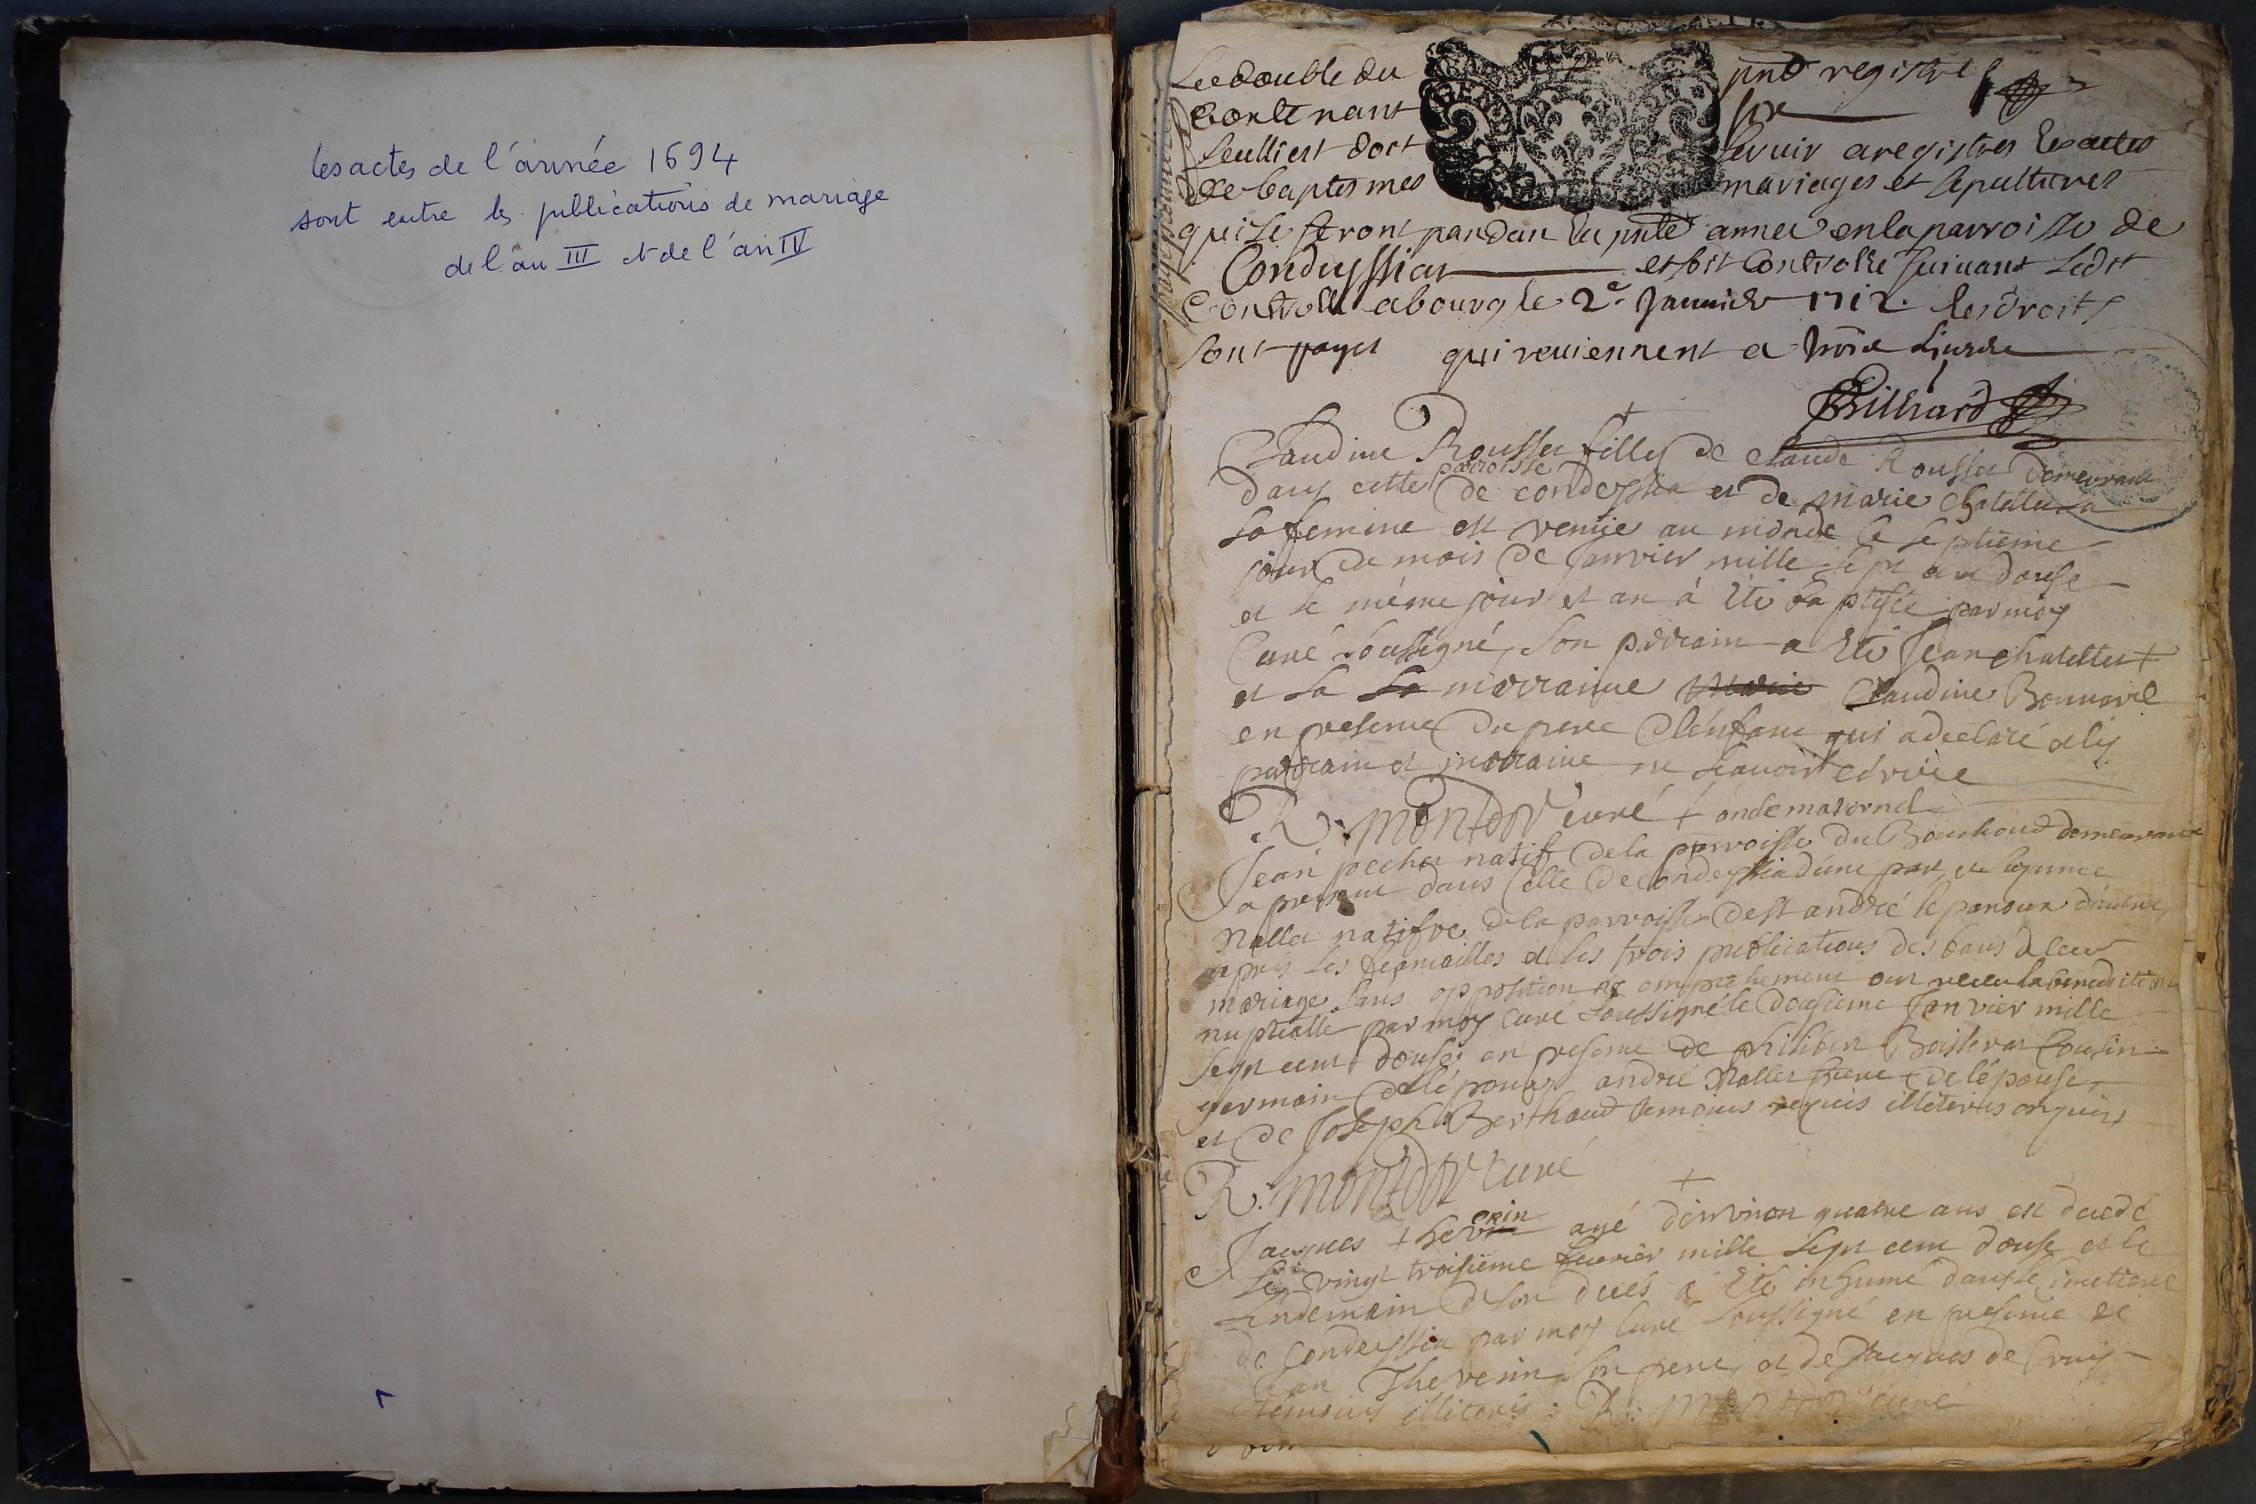 les actes de l'année 1694
sont entre les publications de mariage
de l'an III et de l'an IV
Le double du pnt registre
Contenant six
feulliest doit servir a registrer les actes
de baptesmes mariages et sepultures
qui se feront pandan la pnte annee en la parroisse de
Condeyssiat et soit Controllé suivant ledit
Controlle a bourg le 2e Janvier 1712. les droits
sont payes qui reviennent a trois livres
Billiard
Claudine Rousset fille de claude Rousset demeurant
dans cette parroisse de condeyssia et de marie chatellet
sa femme est venüe au monde le septieme
jour du mois de janvier mille sept cent douse
et le méme jour et an à été baptisée par moy
Curé soussigné, son parrain a été Jean chatellet +
et sa sa marraine Marie Claudine Bonnavel
en presence du pere de lénfant qui a declaré et les
parrain et marraine ne scavoir écrire
R: montdor curé + oncle maternel
Jean pochet natif de la parroisse du Bouchoud demeurant
a present dans celle de condeyssia d'une part, et
Nallet natifve de la parroisse de st andré le panoux d'autre,
apres les fiancailles et les trois publications des bans de leur
mariage sans opposition ny empechement ont receu la benediction
nuptialle par moy Curé soussigné le Janvier mille
sept cent douse; en presence de philibert Cousin
germain de lépoux, andré Nallet frere de lépouse,
et de Joseph Berthaud temoins requis illiterés enquis
R: montdor curé
+
Jacques thevenin agé d'environ quatre ans est decedé
le vingt troisieme feuvrier mille sept cent douse et le
lendemain de son decés a été inhumé dans le cimetiere
de Condeyssia par moy Curé soussigné en presence de
Jean Thevenin son pere, et de Jacques de Cruis
temoins illiterés: R: montdor curé